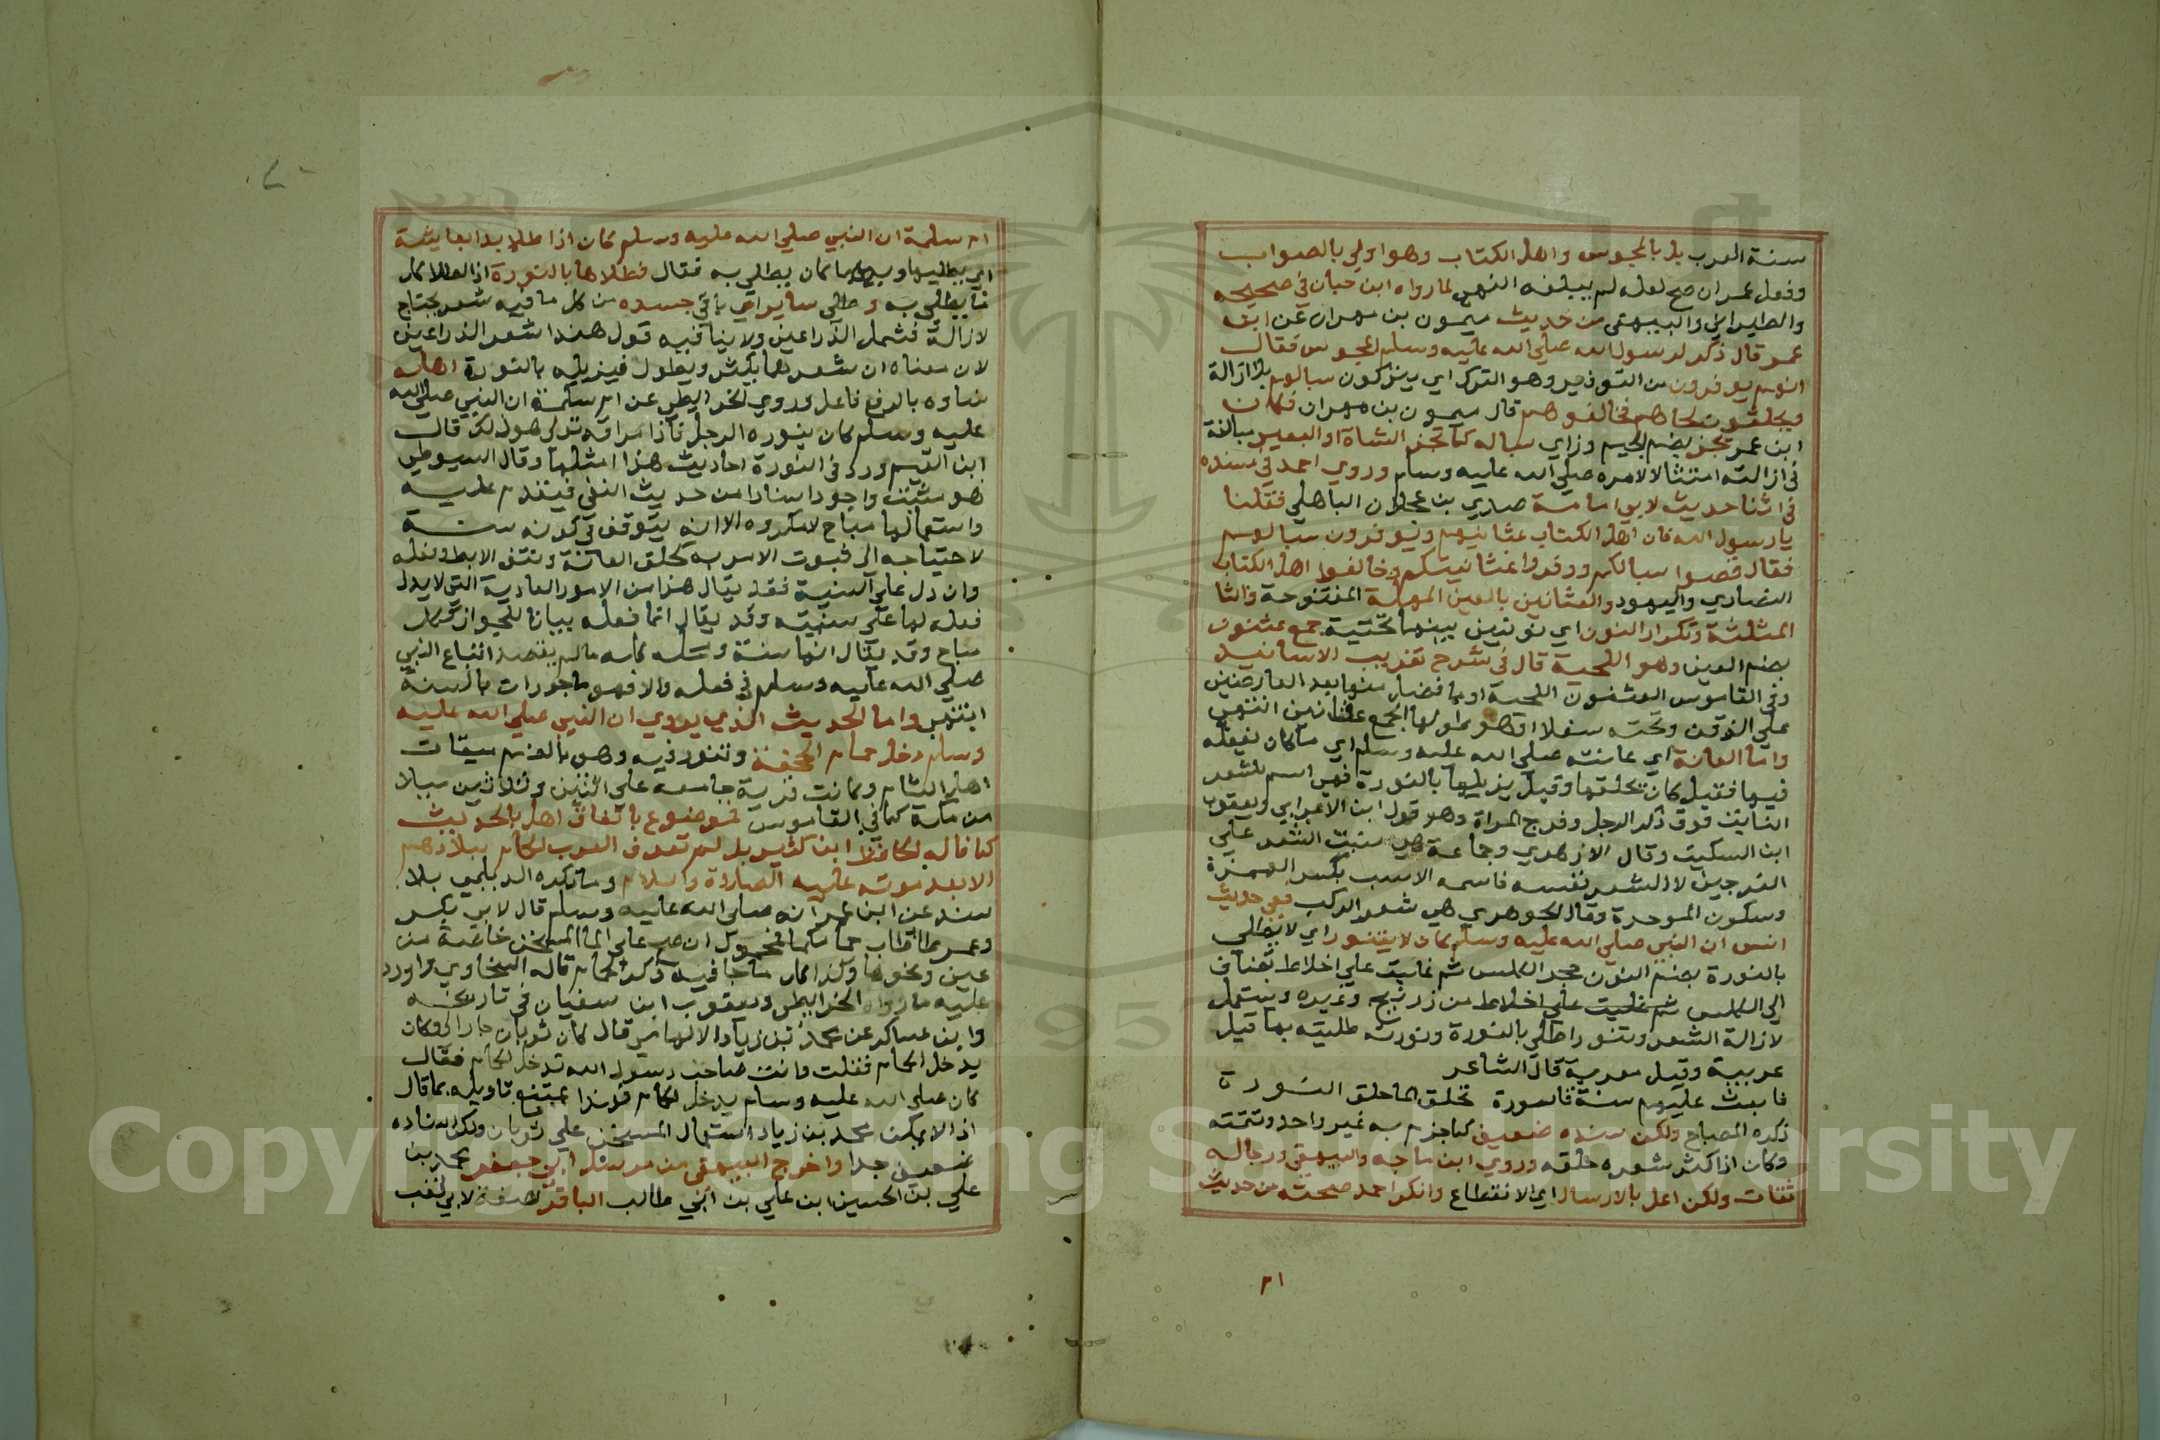 سنة العرب بل بالمجوس واهل الكتاب وهو اولي بالصواب
وفعل عمر ان صح لعله لم يبلغه النهي لما رواه ابن حبان في صحيحه
والطبراني والبيهقي من حديث ميمون بن مهران عن ابن
عمر قال ذكر لرسول الله صلي الله عليه وسلم المجوس فقال
انهم يوفرون من التوفير وهو الترك اي يتركون سبالهم بلا ازالة
ويحلقون لحاهم فخالفوهم قال ميمون بن مهران فكان
ابن عمر يجز بضم الجيم وزاي سباله كما تجز الشاة او البعير مبالغة
في ازالته امتثالا لامره صلي الله عليه وسلم وروي احمد في مسنده
في اثنا حديث لابي امامة صدي بن عجلان الباهلي فقلنا
يا رسول الله فان اهل الكتاب عثانينهم ويوفرون سبالهم
فقال قصوا سبالكم ووفروا عثانينكم وخالفوا اهل الكتاب
النصاري واليهود والعثانين بالعين المهملة المفتوحة والثا
المثلثة وتكرار النون اي نونين بينهما تحتية جمع عثنون
بضم العين وهو اللحية قال في شرح تقريب الاسانيد
وفي القاموس العثنون اللحية او ما فضل منها بعد العارضين
علي الذقن وتحته سفلا او هو طولها الجمع عثانين انتهي
واما العانة اي عانته صلي الله عليه وسلم اي ما كان يفعله
فيها فقيل كان يحلقها وقيل يزيلها بالنورة فهي اسم للشعر
النابت فوق ذكر الرجل وفرج المراة وهو قول ابن الاعرابي ويعقوب
ابن السكيت وقال الازهري وجماعة هي منبت الشعر علي
الفرجين لا الشعر نفسه فاسمه الاسب بكسر الهمزة
وسكون الموحدة وقال الجوهري هي شعر الركب ففي حديث
انس ان النبي صلي الله عليه وسلم كان لا يتنور اي لا يطلي
بالنورة بضم النون حجر الكلس ثم غلبت علي اخلاط تضاف
الي الكلس ثم غلبت علي اخلاط من زرنيخ وغيره وتستعمل
لازالة الشعر وتنور اطلي بالنورة ونورته طليته بها قيل
عربية وقيل معربة قال الشاعر
فابعث عليهم سنة قاسورة تحتلق المال حلق النورة
ذكره المصباح ولكن سنده ضعيف كما جزم به غير واحد وتتمته
وكان اذا كثر شعره حلقه وروي ابن ماجه والبيهقي ورجاله
ثقات ولكن اعل بالارسال اي الانقطاع وانكر احمد صحته من حديث
٢١
ام سلمة ان النبي صلي الله عليه وسلم كان اذا طلا بدا بعانته
اي يطليها بما كان يطلي به فقال فطلاها بالنورة
يطلي به وطلي ساير اي باقي جسده من كل ما فيه شعر يحتاج
لازالة فشمل الذراعين ولا ينافيه قول هند اشعر الذراعين
لان معناه ان شعرهما يكثر ويطول فيزيله بالنورة اهله
نساوه بالرفع فاعل وروي الخرايطي عن ام سلمة ان النبي صلي الله
عليه وسلم كان ينوره الرجل فاذا مراقه تولي هو ذلك قال
ابن القيم ورد في النورة احاديث هذا امثلها وقال السيوطي
هو مثبت واجود اسنادا من حديث النفي فيقدم عليه
واستعمالها مباح لا مكروه الا انه يتوقف في كونه سنة
لاحتياجه الي ثبوت الامر به كحلق العانة ونتف الابط وفعله
وان دل علي السنية فقد يقال هذا من الامور العادية التي لا يدل
فعله لها علي سنيته وقد يقال انما فعله بيانا للجواز ككل
مباح وقد يقال انها سنة ومحله كله ما لم يقصد اتباع النبي
صلي الله عليه وسلم في فعله والا فهو ماجور ات بالسنة
انتهي واما الحديث الذي يروي ان النبي صلي الله عليه
وسلم دخل حمام الجحفة وتنور فيه وهي بالضم ميقات
اهل الشام وكانت قرية جامعة علي اثنين وثلاثين ميلا
من مكة كما في القاموس فموضوع باتفاق اهل الحديث
كما قاله الحافظ ابن كثير بل لم تعرف العرب الحمام ببلادهم
الا بعد موته عليه الصلاة والسلام وما ذكره الديلمي بلا
سند عن ابن عمر انه صلي الله عليه وسلم قال لابي بكر
وعمر طاب حمامكما فمحمول ان صح علي الما المسخن خاصة من
عين ونحوها وكذا كل ما جا فيه ذكر الحمام قاله السخاوي واورد
عليه ما رواه الخرايطي ويعقوب ابن سفيان في تاريخه
وابن عساكر عن محمد بن زياد الالهاني قال كان ثوبان جارا لي وكان
يدخل الحمام فقلت وانت صاحب رسول الله تدخل الحمام فقال
كان صلي الله عليه وسلم يدخل الحمام فهذا يمنع تاويله بما قال
اذ لا يمكن محمد بن زياد استعمال المسخن علي ثوبان ولكن اسناده
ضعيف جدا واخرج البيهقي من مرسل ابي جعفر محمد بن
علي بن الحسين ابن علي بن ابي طالب الباقر صفة لابي لقب
Copyright © King Saud University
1957